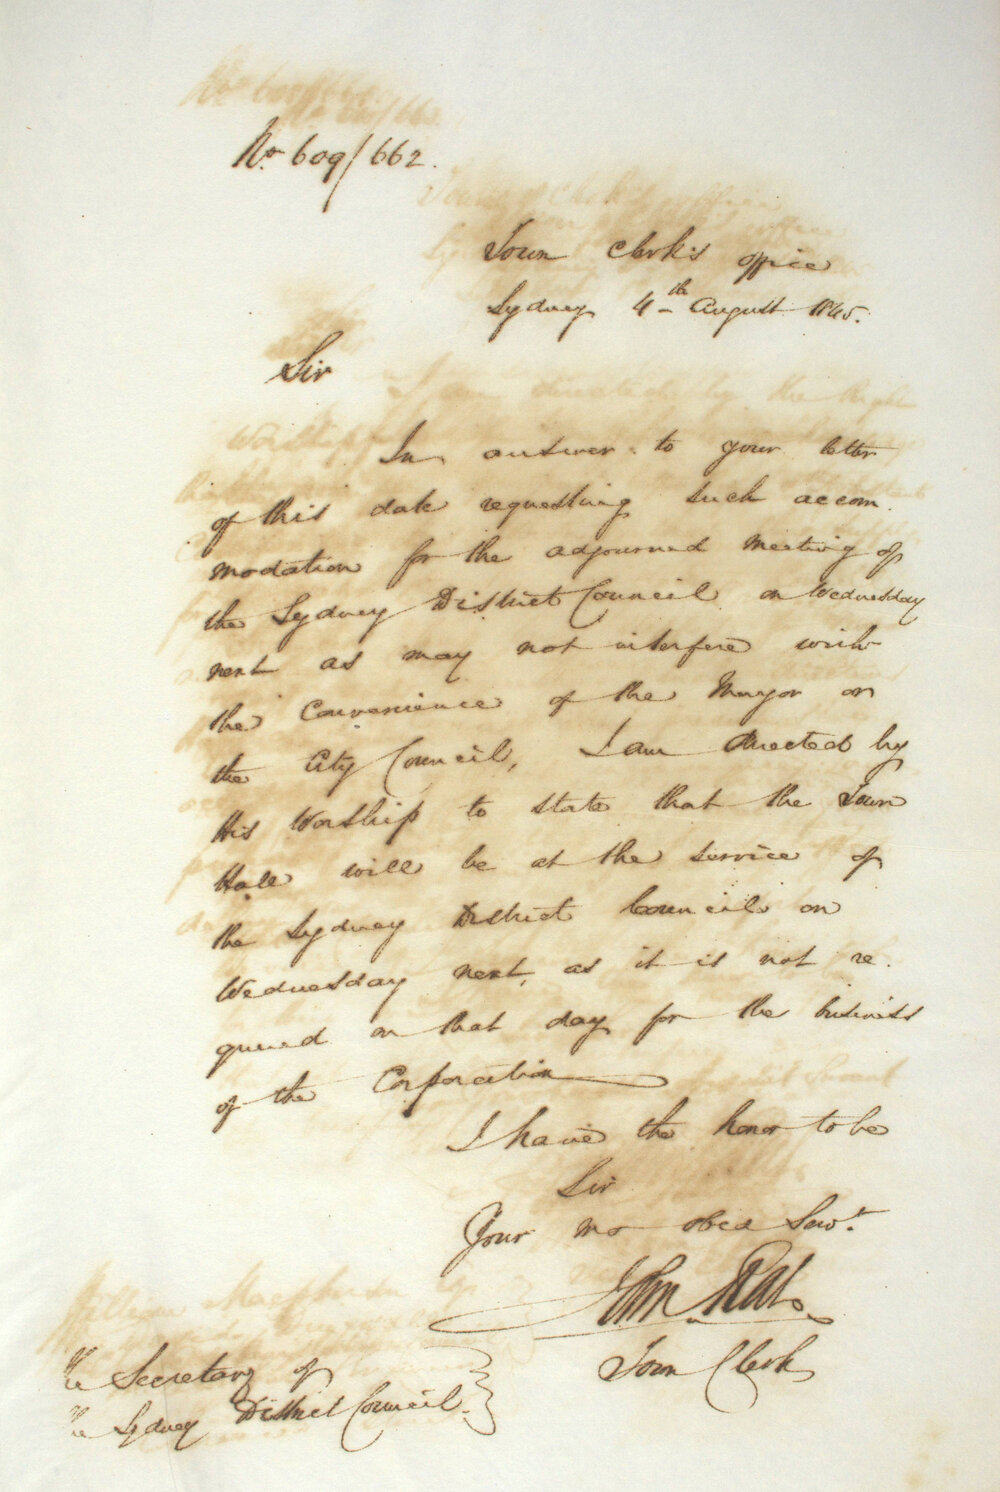 No. 609/662.
Town Clerk's office
Sydney 4th August 1845.
Sir
In answer to your letter
of this date requesting such accom
modation for the adjourned meeting of
the Sydney District Council on Wednesday
next as may not interfere with
the convenience of the Mayor or
the City Council, I am directed by
His Worship to state that the Town
Hall will be at the service of
the Sydney District Council on
Wednesday next, as it is not re
quired on that day for the business
of the Corporation
I have the honor to be
Sir
Your mo obed Servt.
John
Town Clerk
The Secretary of
the Sydney District Council.